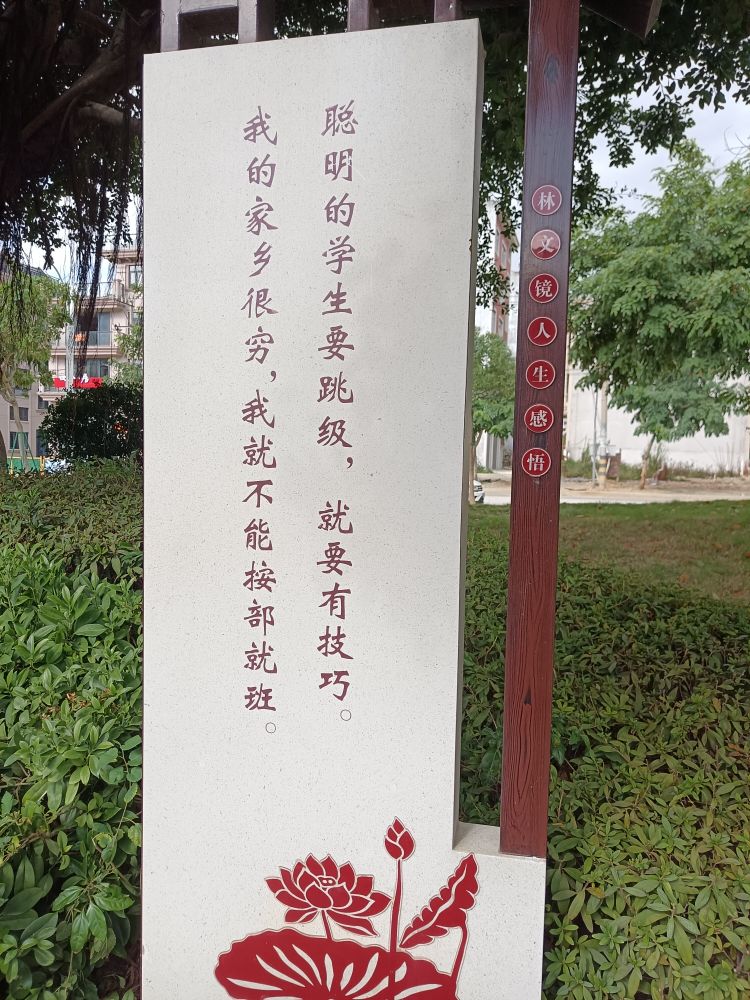 林文镜人生感悟
聪明的学生要跳级，就要有技巧。
我的家乡很穷，我就不能按部就班。